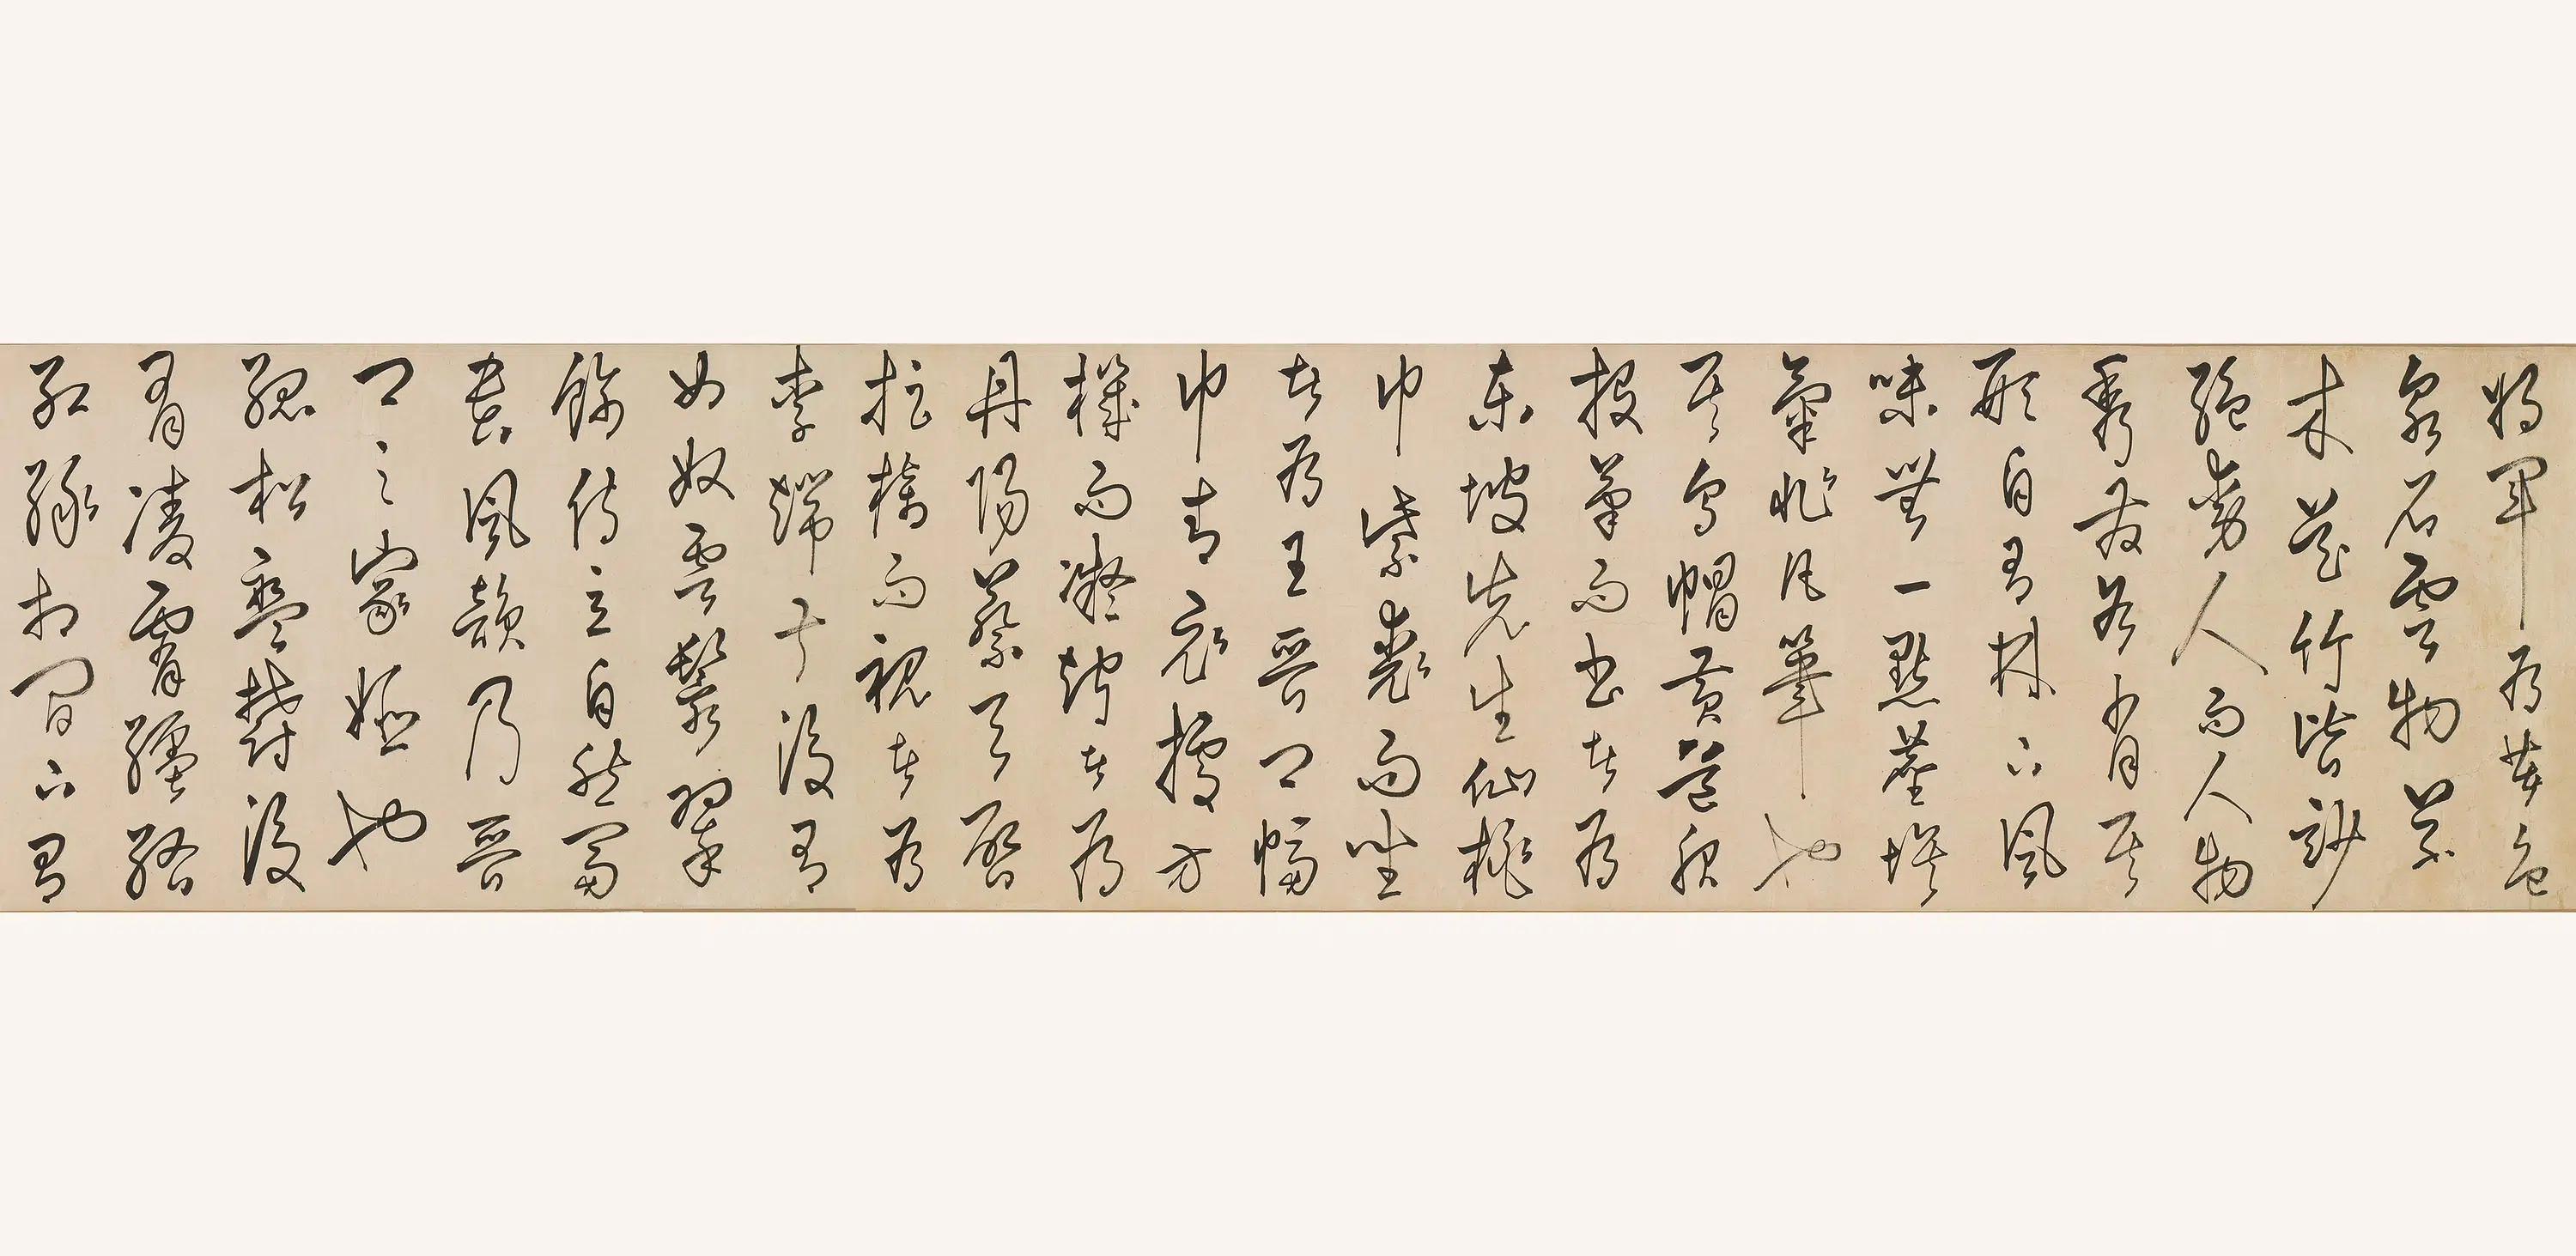 將軍為著色
泉石雲物草
木花竹皆妙
絕動人而人物
秀發各肖其
形自有林下風
味無一點塵埃
氣非凡筆也
其烏帽黃道服
捉筆而書者為
東坡先生仙桃
巾紫裘而坐
者為王晉卿幅
巾青衣據方
機而凝竚者為
丹陽蔡天啓
捉椅而視者為
李端叔後有
女奴雲鬟翠
飾侍立自然富
貴風韻乃晉
卿之家姬也
孤松盤鬱後
有凌霄纏絡
紅綠相間下有